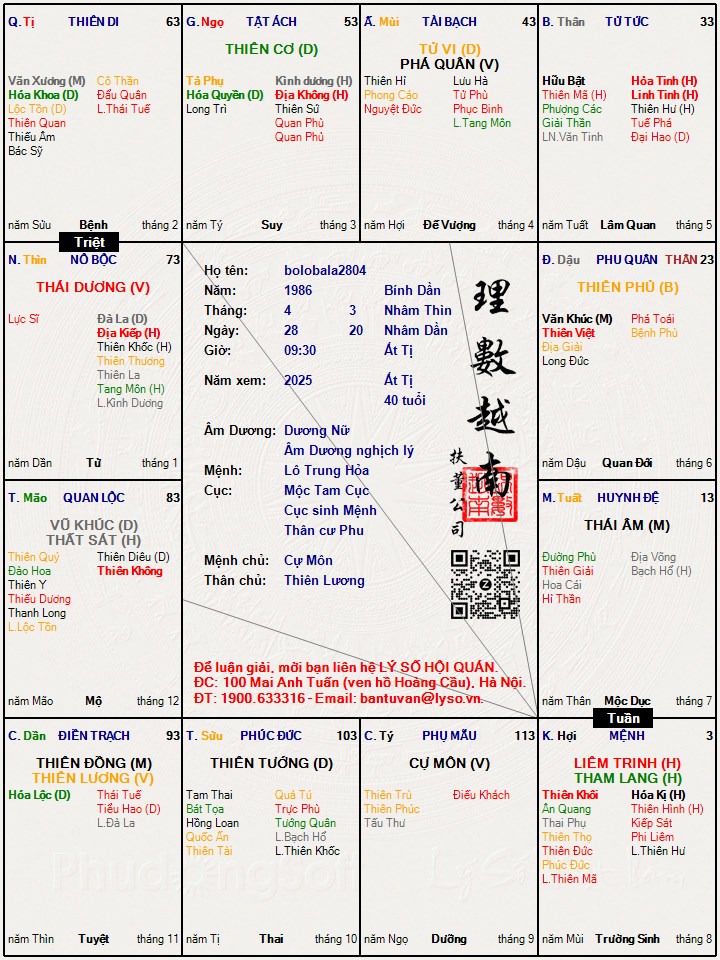 Q. Tị THIÊN DI 63
Văn Xương (M)
Hóa Khoa (D)
Lộc Tồn (D)
Thiên Quan
Thiếu Âm
Bác Sỹ
Cô Thần
Đẩu Quân
L.Thái Tuế
năm Sửu Bệnh tháng 2
G. Ngọ TẬT ÁCH 53
THIÊN CƠ (D)
Tả Phụ
Hóa Quyền (D)
Long Trì
Kình dương (H)
Địa Không (H)
Thiên Sứ
Quan Phù
Quan Phủ
năm Tý Suy tháng 3
Ấ. Mùi TÀI BẠCH 43
TỬ VI (D)
PHÁ QUÂN (V)
Thiên Hỉ
Phong Cáo
Nguyệt Đức
Lưu Hà
Tử Phù
Phục Binh
L.Tang Môn
năm Hợi Đế Vượng tháng 4
B. Thân TỬ TỨC 33
Hữu Bật
Thiên Mã (H)
Phượng Các
Giải Thần
LN.Văn Tinh
Hỏa Tinh (H)
Linh Tinh (H)
Thiên Hư (H)
Tuế Phá
Đại Hao (D)
năm Tuất Lâm Quan tháng 5
Triệt
N. Thìn NÔ BỘC 73
THÁI DƯƠNG (V)
Lực Sĩ
Đà La (D)
Địa Kiếp (H)
Thiên Khốc (H)
Thiên Thương
Thiên La
Tang Môn (H)
L.Kình Dương
năm Dần Tử tháng 1
Họ tên: bolobala2804
Năm: 1986 Bính Dần
Tháng: 4 3 Nhâm Thìn
Ngày: 28 20 Nhâm Dần
Giờ: 09:30 Ất Tị
Năm xem: 2025 Ất Tị
40 tuổi
Âm Dương: Dương Nữ
Âm Dương nghịch lý
Mệnh: Lô Trung Hỏa
Cục: Mộc Tam Cục
Cục sinh Mệnh
Thân cư Phu
Mệnh chủ: Cự Môn
Thân chủ: Thiên Lương
理數越南
扶董公司
Z
Để luận giải, mời bạn liên hệ LÝ SỐ HỘI QUÁN.
ĐC: 100 Mai Anh Tuấn (ven hồ Hoàng Cầu), Hà Nội.
ĐT: 1900.633316 - Email: bantuvan@lyso.vn.
Đ. Dậu PHU QUÂN THÂN 23
THIÊN PHỦ (B)
Văn Khúc (M)
Thiên Việt
Địa Giải
Long Đức
Phá Toái
Bệnh Phù
năm Dậu Quan Đới tháng 6
T. Mão QUAN LỘC 83
VŨ KHÚC (D)
THẤT SÁT (H)
Thiên Quý
Đào Hoa
Thiên Y
Thiếu Dương
Thanh Long
L.Lộc Tồn
Thiên Diêu (D)
Thiên Không
năm Mão Mộ tháng 12
M. Tuất HUYNH ĐỆ 13
THÁI ÂM (M)
Đường Phù
Thiên Giải
Hoa Cái
Hỉ Thần
Địa Võng
Bạch Hổ (H)
năm Thân Mộc Dục tháng 7
Tuần
C. Dần ĐIỀN TRẠCH 93
THIÊN ĐỒNG (M)
THIÊN LƯƠNG (V)
Hóa Lộc (D)
Thái Tuế
Tiểu Hao (D)
L.Đà La
năm Thìn Tuyệt tháng 11
T. Sửu PHÚC ĐỨC 103
THIÊN TƯỚNG (D)
Tam Thai
Bát Tọa
Hồng Loan
Quốc Ấn
Thiên Tài
Quả Tú
Trực Phù
Tướng Quân
L.Bạch Hổ
L.Thiên Khốc
năm Tị Thai tháng 10
C. Tý PHỤ MẪU 113
CỰ MÔN (V)
Thiên Trù
Thiên Phúc
Tấu Thư
Điếu Khách
năm Ngọ Dưỡng tháng 9
K. Hợi MỆNH 3
LIÊM TRINH (H)
THAM LANG (H)
Thiên Khôi
Ân Quang
Thai Phụ
Thiên Thọ
Thiên Đức
Phúc Đức
L.Thiên Mã
Hóa Kị (H)
Thiên Hình (H)
Kiếp Sát
Phi Liêm
L.Thiên Hư
năm Mùi Trường Sinh tháng 8